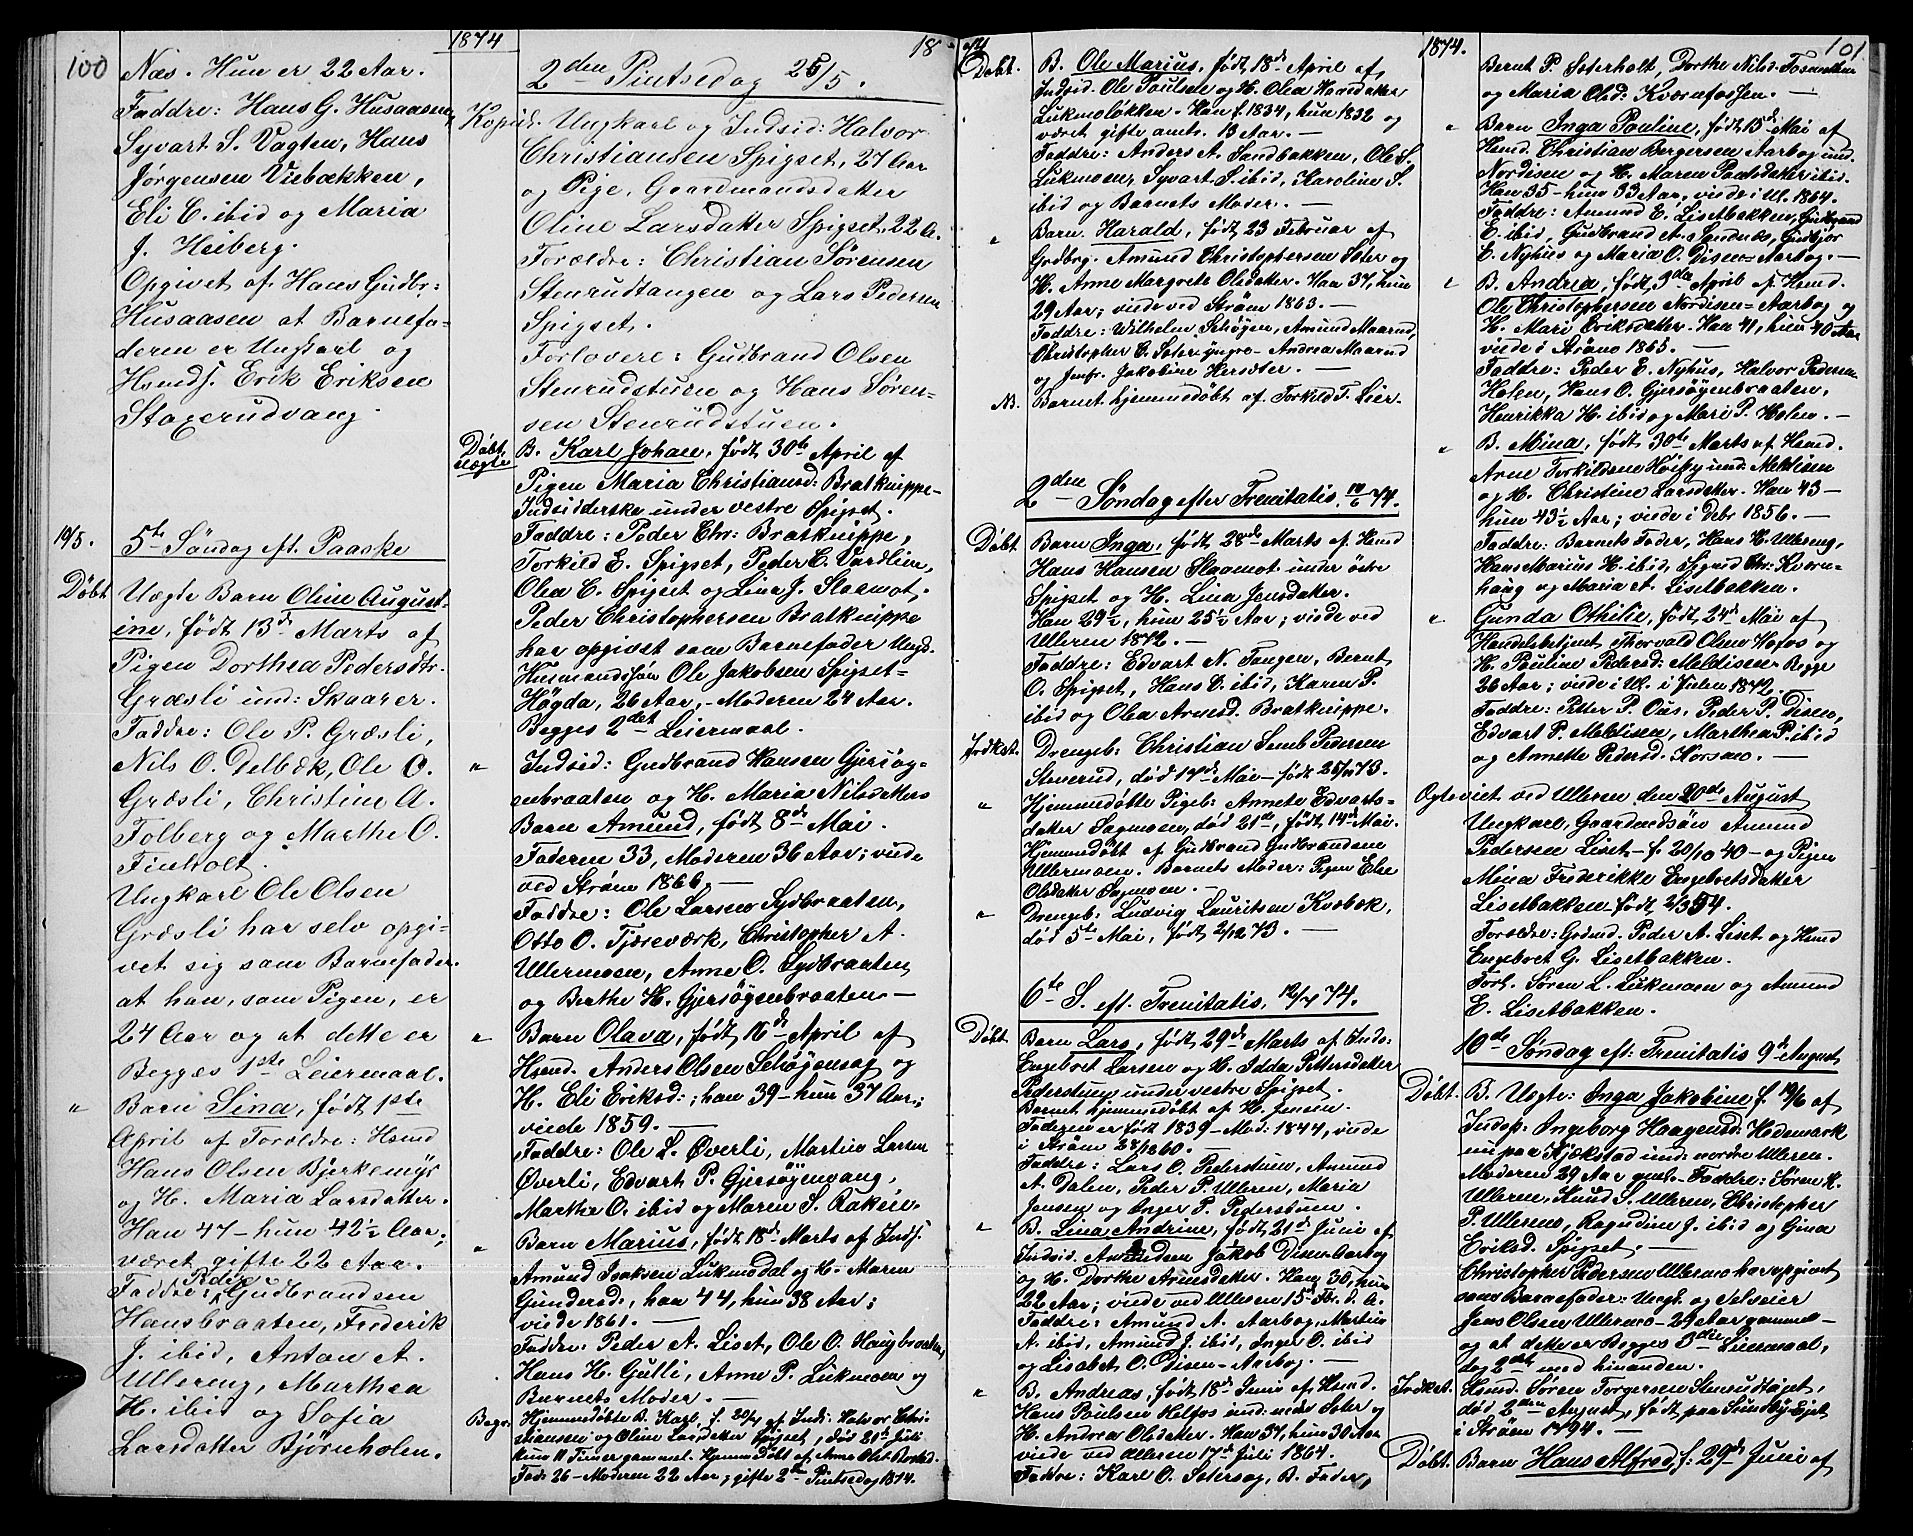 100
Næs. Hun er 22 Aar.
Faddre: Hans G. Husaasen,
Syvart S. Vagten, Hans
Jørgensen Viebækken,
Eli C. ibid og Maria
J. Heiberg.
Opgivet af Hans Gudbr:
Husaasen at Barnefa-
deren er Ungkarl og
Hsmds. Erik Eriksen
Stagerudvang.
10/5. 5te Søndag eft. Paaske
Døbt Uægte Barn Oline August-
ine, født 13de Marts af
Pigen Dorthea Pedersdtr.
Græsli und: Skaarer.
Faddre: Ole P. Græsli,
Nils O. Delbæk, Ole O.
Græsli, Christine A.
Folberg og Marthe O.
Finholt.
Ungkarl Ole Olsen
Græsli har selv opgi-
vet sig som Barnefader
at han, som Pigen, er
24 Aar og at dette er
Begges 1ste Leiermaal.
" Barn Sina, født 1ste
April af Forældre: Hsmd
Hans Olsen Bjerkemyr
og H. Maria Larsdatter.
Han 47 – hun 42½ Aar;
været gifte 22 Aar.
Faddre: Peder Gudbrandsen
Hansbraaten, Frederik
J. ibid, Anton A.
Ullereng, Marthea
H. ibid og Sofia
Larsdatter Bjørnholen.
1874
18
2den Pintsedag 25/5.
Kopul. Ungkarl og Indsid: Halvor
Christiansen Spigset, 27 Aar
og Pige, Gaardmandsdatter
Oline Larsdatter Spigset, 22 A.
Forældre: Christian Sørensen
Stenrudtangen og Lars Pedersen
Spigset.
Forlovere: Gudbrand Olsen
Stenrudstuen og Hans Søren-
sen Stenrudstuen.
Døbt uægte B. Karl Johan, født 30te April af
Pigen Maria Christiansd: Bratknippe-
Indsidderske under vestre Spigset.
Faddre: Peder Chr: Bratknippe,
Torkild E. Spigset, Peder C. Vardlien,
Olea C. Spigset og Lina J. Slaamot.
Peder Christophersen Bratknippe
har opgivet som Barnefader Ungk.
Husmandssøn Ole Jakobsen Spigset-
Høgda, 26 Aar, – Moderen 24 Aar.
Begges 2det Leiermaal.
" Indsid: Gudbrand Hansen Gjersøg-
enbraaten og H. Maria Nilsdatters
Barn Amund, født 8de Mai.
Faderen 33, Moderen 36 Aar; viede
ved Strøm 1866. –
Faddre: Ole Larsen Sydbraaten,
Otto O. Tjæreværk, Christopher A.
Ullermoen, Anne O. Sydbraaten
og Berthe H. Gjersøgenbraaten –
" Barn Olava, født 16de April af
Hsmd. Anders Olsen Schøgensag og
H. Eli Eriksd:; han 39 – hun 37 Aar;
viede 1859. –
Faddre: Ole L. Øverli, Martin Larsen
Øverli, Edvart P. Gjersøgenvang,
Marthe O. ibid og Maren S. Raken.
" Barn Marius, født 18de Marts af Inds.
Amund Isaksen Lukmodal og H. Maren
Gundersd., han 44, hun 38 Aar;
viede 1861. –
Faddre: Peder A. Liset, Ole O. Haugbraaten,
Hans H. Gulli, Anne P. Lukmoen og
Barnets Moder. –
Begr. Hjemmedøbte B. Karl, f. 20/7 af Inds: Halvor Chri-
stiansen og Oline Larsdatter Spigset, død 21de Juli
kun 11 Timer gammel. Hjemmedøbt af Anne Olsd.
Fade 26 – Moderen 22 Aar, gifte 2den Pintsedag 1874.
74
Døbt. B. Ole Marius, født 18de April af
Indsid. Ole Poulsen og H. Olea Hansdatter
Lukmoløkken. – Han f. 1834, hun 1832 og
været gifte omtr. 13 Aar. –
Faddre: Anders A. Sandbakken, Ole S.
Lukmoen, Syvart S. ibid, Karoline S.
ibid og Barnets Moder. –
" Barn Harald, født 23 Februar af
Grdbrg. Amund Christophersen Soter og
H. Anne Margrete Olsdatter. Han 37, hun
29 Aar; viede ved Strøm 1863. –
Faddre: Wilhelm Schøgen, Amund Maarud,
Christopher C. Soter yngre – Andrea Maarud
og Jomfr. Jakobine Hersæter. –
NB. Barnet hjemmedøbt af Torkild T. Lier.
2den Søndag efter Trenitatis. 14/6 74.
Døbt Barn Inga, født 28de Marts af Hsmd
Hans Hansen Slaamot under østre
Spigset og H. Lina Jensdatter.
Han 29½, hun 25½ Aar; viede ved
Ulleren 1872. –
Faddre: Edvart N. Tangen, Bernt
O. Spigset, Hans O. ibid, Karen P.
ibid og Olea Arnesd. Bratknippe.
Jrdkst. Drengeb: Christian Semb Pedersen
Steverud, død 17de Mai – født 25/11 73.
" Hjemmedøbte Pigeb: Annete Edvarts-
datter Sagmoen, død 21de, født 14de Mai.
Hjemmedøbt af Gudbrand Gudbrandsen
Ullermoen. Barnets Moder: Pigen Else
Olsdatter Sagmoen. –
" Drengeb: Ludvig Lauritsen Kvæbæk,
død 5te Mai, født 2/12 73. –
6te S. eft. Trenitatis, 12/7 74.
Døbt Barn Lars, født 29de Marts af Inds:
Engebret Larsen og H. Idda Pettersdatter
Pederstuen under vestre Spigset.
Barnet hjemmedøbt af H. Jensen.
Faderen er født 1839 – Mod: 1844, viede
i Strøm 28/ 1860. –
Faddre: Lars O. Pederstuen, Amund
A. Dalen, Peder P. Ulleren, Maria
Jensen og Inger P. Pederstuen.
" B. Lina Andrine, født 21de Juni af
Indsid. Jakob Disen-Aarbog
og H. Dorthe Arnesdatter. Han 30, hun
22 Aar; viede ved Ulleren 15de Fbr. d. A.
Faddre: Amund A. Aarbog, Martin
A. ibid, Amund J. ibid, Inger O. ibid
og Lisabet O. Disen-Aarbog. –
" B. Andreas, født 18de Juni af Hsmd.
Hans Poulsen Helfos und: nedr Soter og
H. Andrea Olsdatter. Han 37, hun 30 Aar
viede ved Ulleren 17de Juli 1864. –
Faddre: Karl O. Setersag, B. Fader,
1874.
101
Bernt P. Soterholt, Dorthe Nilsd. Fosenthen
og Maria Olsd: Kværnfossen. –
" Barn Inga Pauline, født 15de Mai af
Hsmd. Christian Bergersen Aarbog und.
Nordisen og H. Maren Paalsdatter ibid.
Han 35 – hun 33 Aar, viede i Ul. 1864.
Faddre: Amund E. Lisetbakken, Gudbrand
E. ibid, Gudbrand A. Sundnæs, Gudbjør
E. Nyhus og Maria O. Disen-Aarbog. –
" B. Andrea, født 3die April af Hsmd.
Ole Christophersen Nordisen-Aarbog og
H. Mari Eriksdatter. Han 41, hun 40 Aar
viede i Strøm 1865. –
Faddre: Peder E. Nyhus, Halvor Pedersen
Holen, Hans O. Gjersøgenbraaten,
Henrikka H. ibid og Mari P. Holen. –
" B. Mina, født 30te Marts af Hsmd.
Arne Torkildsen Høiby und: Meldisen
og H. Christine Larsdatter. Han 43 –
hun 43½ Aar; viede i Debr 1856. –
Faddre: Barnets Fader, Hans H. Ullereng,
Hans Marius H. ibid, Sigrid Chr: Kværn-
haug og Maria A. Lisetbakken.
" Gunda Othilie, født 24de Mai af
Handelsbetjent Thorvald Olsen Hofos og
H. Pauline Pedersd: Meldisen. Begge
26 Aar; viede i Ul. i Julen 1872.
Faddre: Petter P. Ous, Peder P. Disen,
Edvart P. Meldisen, Marthea P. ibid
og Annette Pedersd. Korsmo. –
Ægteviet ved Ulleren den 20de August
Ungkarl, Gaardmdsøn Amund
Pedersen Liset – f. 20/10 40 – og Pigen
Mina Frederikke Engebretsdatter
Lisetbakken – født 2/3 54.
Forældre: Grdmd. Peder A. Liset og Hsmd
Engebret G. Lisetbakken.
Forl. Søren L. Lukmoen og Amund
E. Lisetbakken.
10de Søndag eft: Trenitatis 9de August
Døbt. B. Uægte: Inga Jakobine f. 19/6 af
Indsp: Ingeborg Haagensd: Hedemark
nu paa Kjækstad und: nordre Ulleren.
Moderen 29 Aar gml. – Faddre: Søren K.
Ulleren, Lund S. Ulleren, Christopher
P. Ulleren, Ragndine J. ibid og Gina
Eriksd. Spigset. –
Christopher Pedersen Ullermo har opgivet
som Barnefader: Ungk. og Selveier
Jens Olsen Ullermo – 29 Aar gammel –
og at dette er Begges 3die Leiermaal,
dog 2det med hinanden.
Jrdkst. Hsmd. Søren Torgersen Stenrudtøjet,
død 2den August, født paa Sundby Eiet
i Strøm 1794. –
Døbt. Barn Hans Alfred, f: 29de Juni af